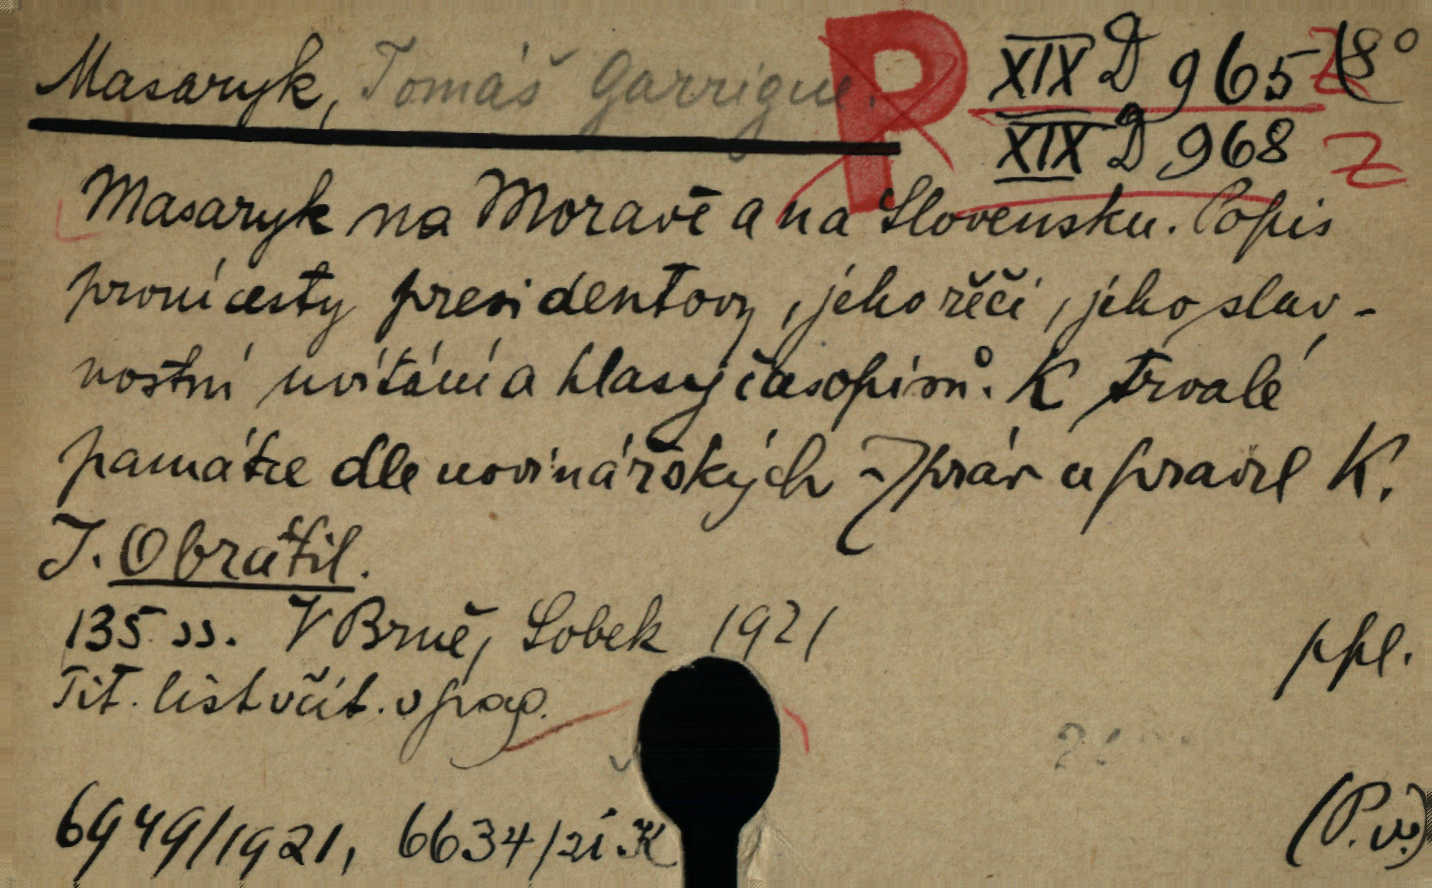 Masaryk, Tomáš Garrigue.
P
XIX D 965 Z (8°
XIX D 968 Z
Masaryk na Moravě a na Slovensku. Popis
první cesty presidentovy, jeho řěči, jeho slav-
nostní uvítání a hlasy časopisů. K trvalé
památce dle novinářských zpráv upravil K.
J. Obrátil.
135 ss. V Brně, Sobek 1921
ppl.
Tit. list včít. v pag.
6949/1921, 6634/21 K
(P.v.)